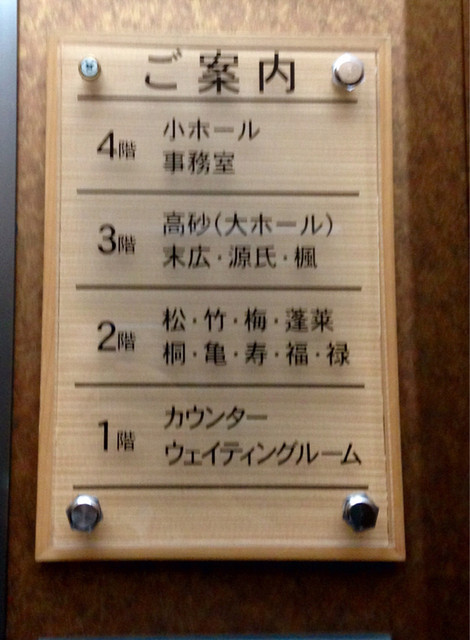 ご案内
4階 小ホール
事務室
3階 高砂(大ホール)
末広・源氏・楓
2階 松・竹・梅・蓬莱
桐・亀・寿・福・禄
1階 カウンター
ウェイティングルーム